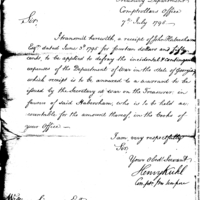 Treasury Department
Comptrollers Office
7th July 1795
Sir,
I transmit herewith, a receipt of John Habersham
Esqr. dated June 3d 1795 for fourteen dollars and fifty
cents, to be applied to defray the incidental & contingent
expenses of the Department of War in the state of Georgia
which receipt is to be annexed to a warrant to be
issued by the Secretary at War on the Treasurer in
favor of said Habersham, who is to be held ac
countable for the amount thereof, in the books of
your Office.
I am, very respectfully
Sir,
Your Obedt. Servant
Henry Kuhl